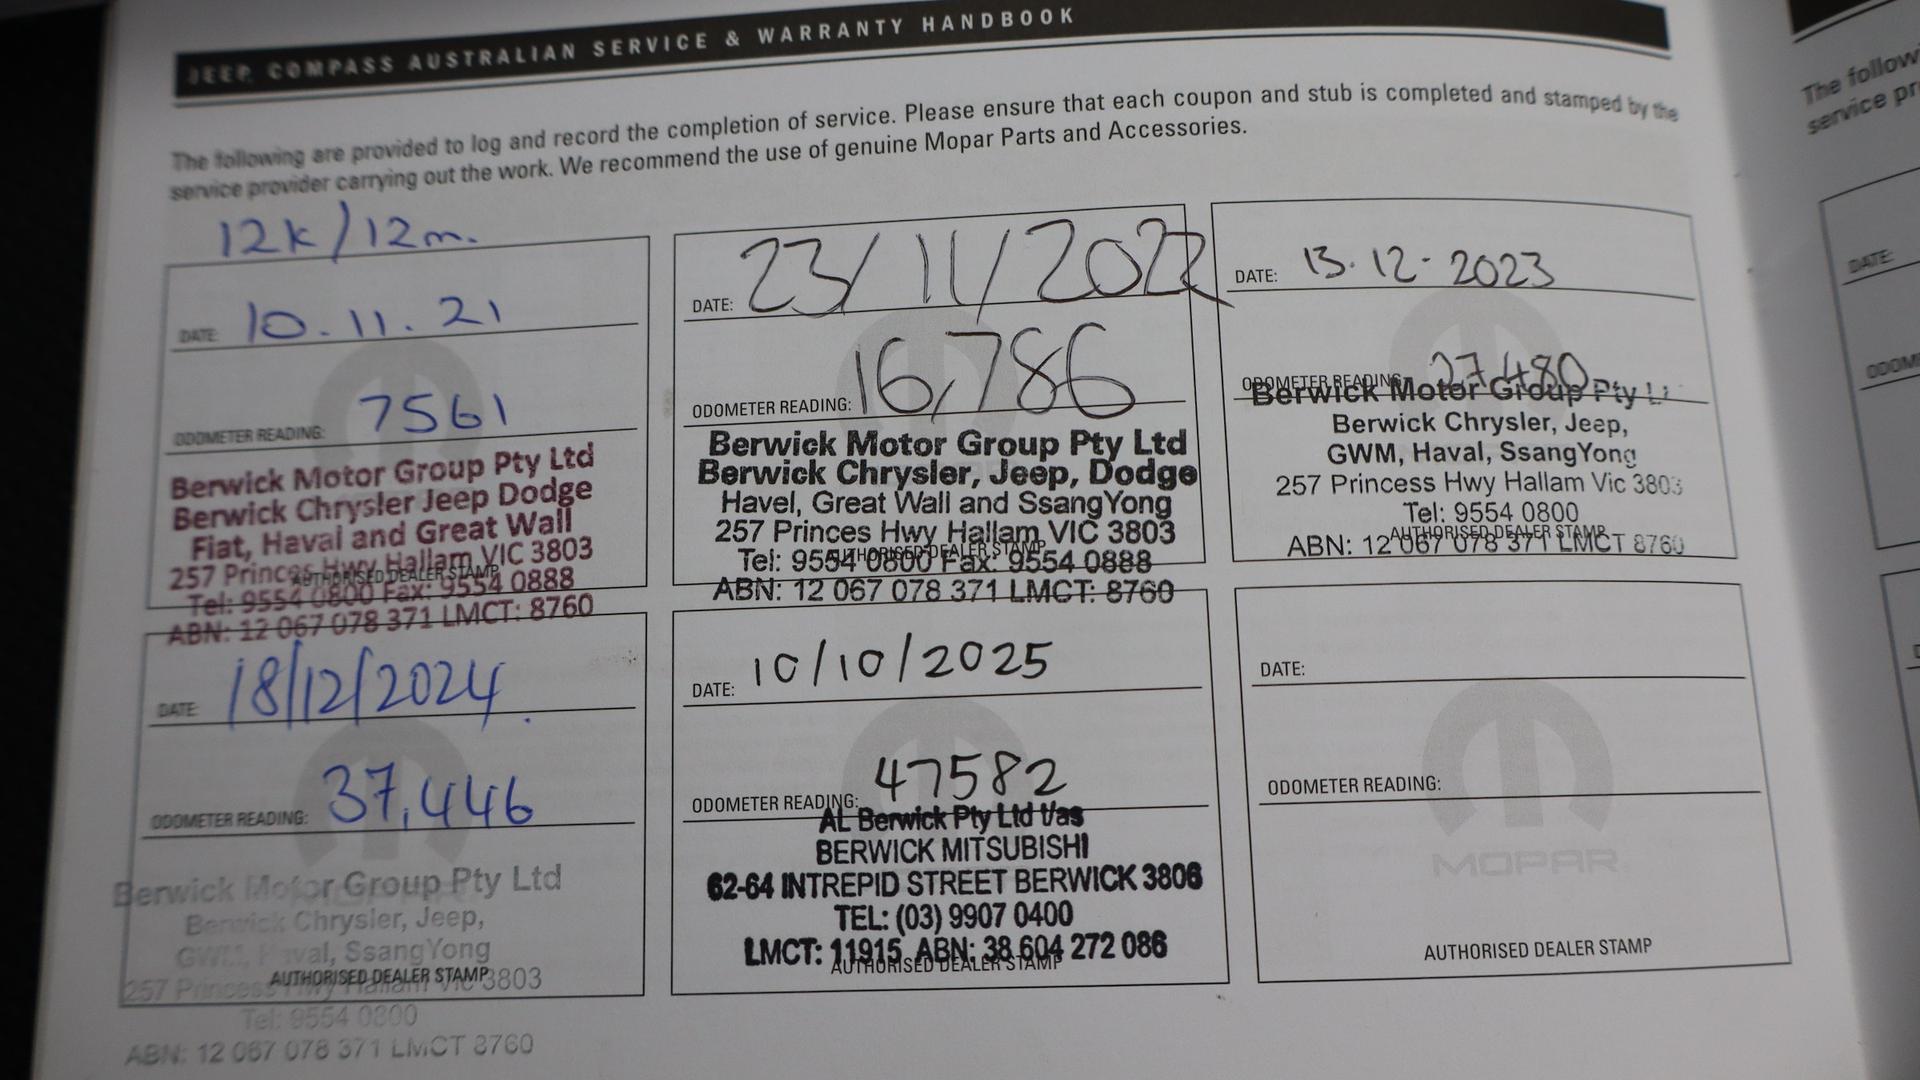 JEEP COMPASS AUSTRALIAN SERVICE & WARRANTY HANDBOOK
The following are provided to log and record the completion of service. Please ensure that each coupon and stub is completed and stamped by the
service provider carrying out the work. We recommend the use of genuine Mopar Parts and Accessories.
12k/12m.
DATE: 10.11.21
ODOMETER READING: 7561
Berwick Motor Group Pty Ltd
Berwick Chrysler Jeep Dodge
Fiat, Haval and Great Wall
257 Princes Hwy Hallam VIC 3803
AUTHORISED DEALER STAMP
Tel: 9554 0800 Fax: 9554 0888
ABN: 12 067 078 371 LMCT: 8760
DATE: 23/11/2022
ODOMETER READING: 16,786
Berwick Motor Group Pty Ltd
Berwick Chrysler, Jeep, Dodge
Havel, Great Wall and SsangYong
257 Princes Hwy Hallam VIC 3803
AUTHORISED DEALER STAMP
Tel: 9554 0800 Fax: 9554 0888
ABN: 12 067 078 371 LMCT: 8760
DATE: 13.12.2023
ODOMETER READING: 27480
Berwick Motor Group Pty
Berwick Chrysler, Jeep,
GWM, Haval, SsangYong
257 Princess Hwy Hallam Vic 3803
Tel: 9554 0800
AUTHORISED DEALER STAMP
ABN: 12 067 078 371 LMCT 8760
DATE: 18/12/2024.
ODOMETER READING: 37,446
Berwick Motor Group Pty Ltd
Berwick Chrysler, Jeep,
GWM, Haval, SsangYong
AUTHORISED DEALER STAMP
257 Princess Hwy Hallam Vic 3803
Tel: 9554 0800
ABN: 12 067 078 371 LMCT 8760
DATE: 10/10/2025
ODOMETER READING: 47582
AL Berwick Pty Ltd t/as
BERWICK MITSUBISHI
62-64 INTREPID STREET BERWICK 3806
TEL: (03) 9907 0400
LMCT: 11915 ABN: 38 604 272 086
AUTHORISED DEALER STAMP
DATE:
ODOMETER READING:
MOPAR
AUTHORISED DEALER STAMP
The
service
DATE: